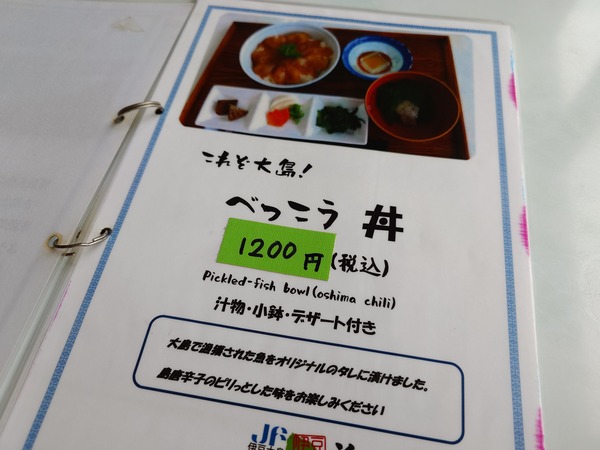 これぞ大島!
べっこう丼
1200円(税込)
Pickled-fish bowl(oshima chili)
汁物・小鉢・デザート付き
大島で漁獲された魚をオリジナルのタレに漬けました。
島唐辛子のピリっとした味をお楽しみください
JF